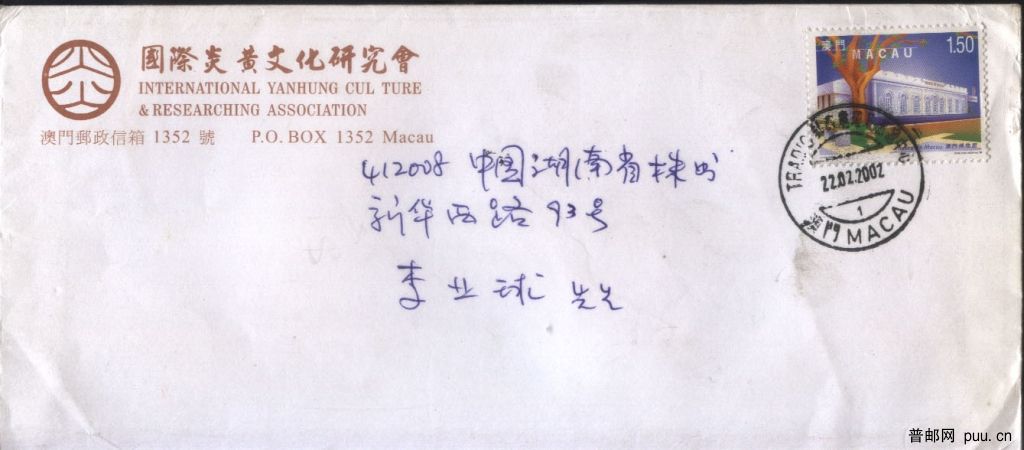 國際炎黃文化研究會
INTERNATIONAL YANHUNG CUL TURE
& RESEARCHING ASSOCIATION
澳門郵政信箱 1352 號 P.O. BOX 1352 Macau
澳門 MACAU 1.50
22.02.2002
1
澳門 MACAU
412008 中国湖南省株州
新华西路93号
李业球 先生
普邮网 puu.cn